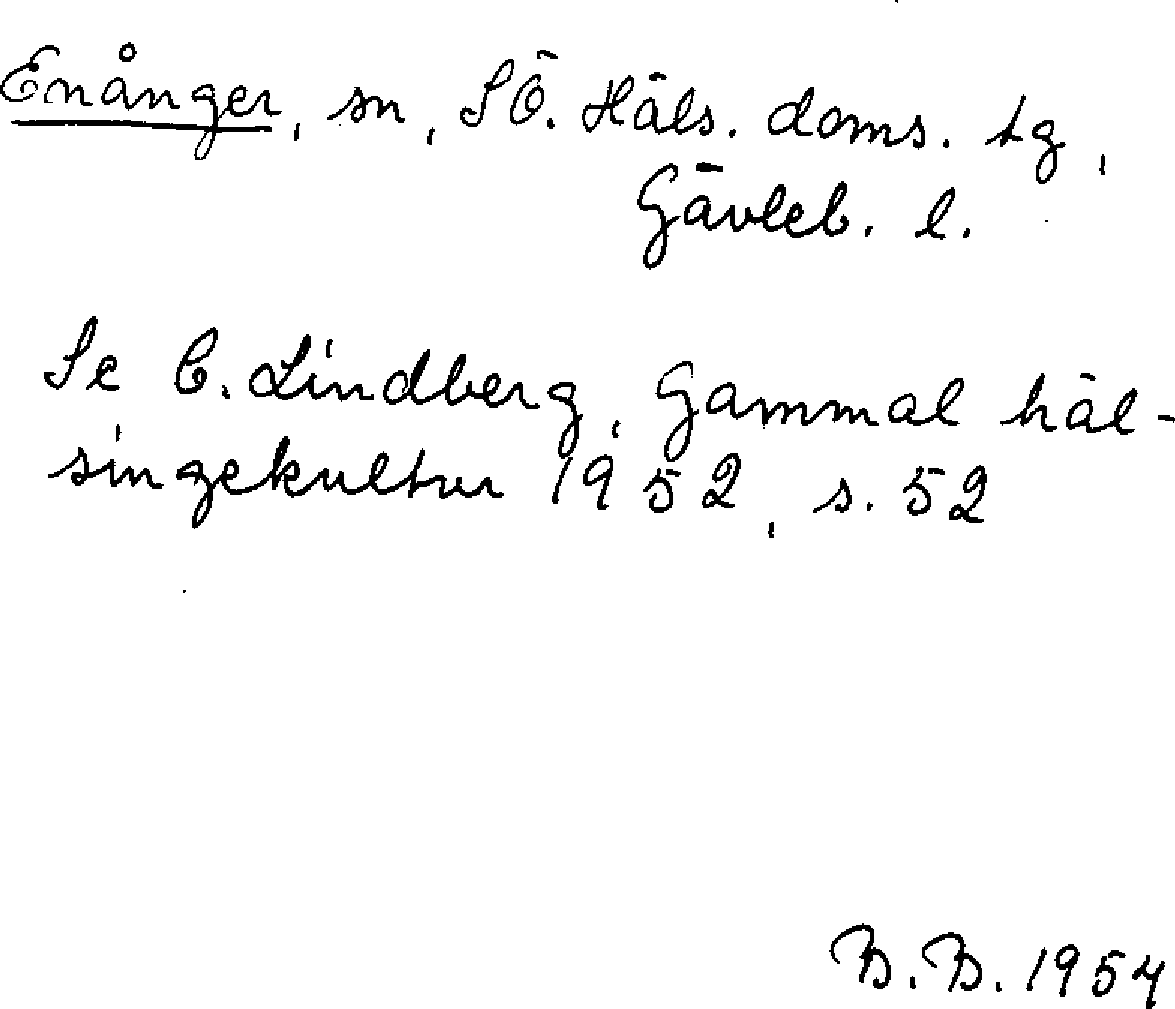 Enånger, sn, SÖ. Häls. doms. tg,
Gävleb. l.
Se C. Lindberg, Gammal häl-
singekultur 1952, s. 52
B.B. 1954